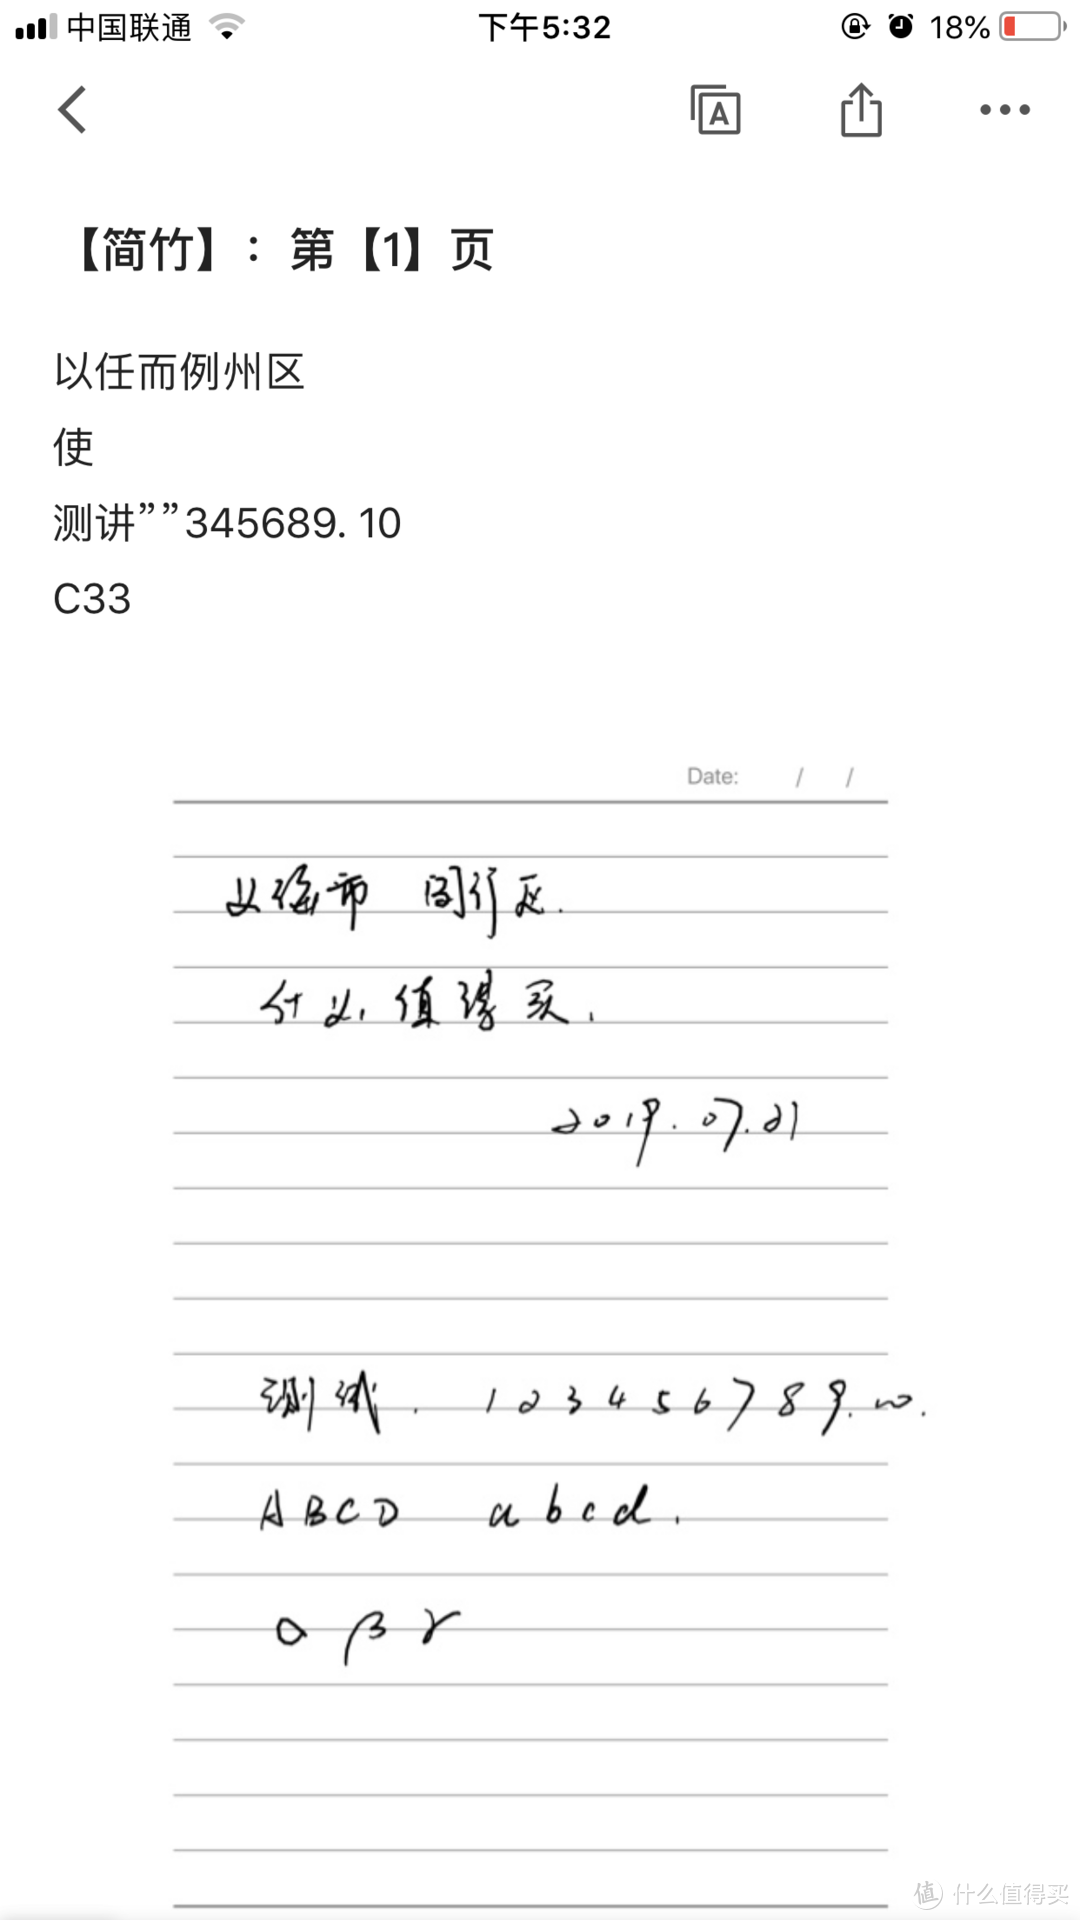 中国联通 下午5:32 18%
A
【简竹】：第【1】页
以任而例州区
使
测讲””345689. 10
C33
Date: / /
市 闵行区.
什么值得买.
2019.07.21
测试. 1 2 3 4 5 6 7 8 9. 10.
A B C D a b c d.
α β γ
值 什么值得买